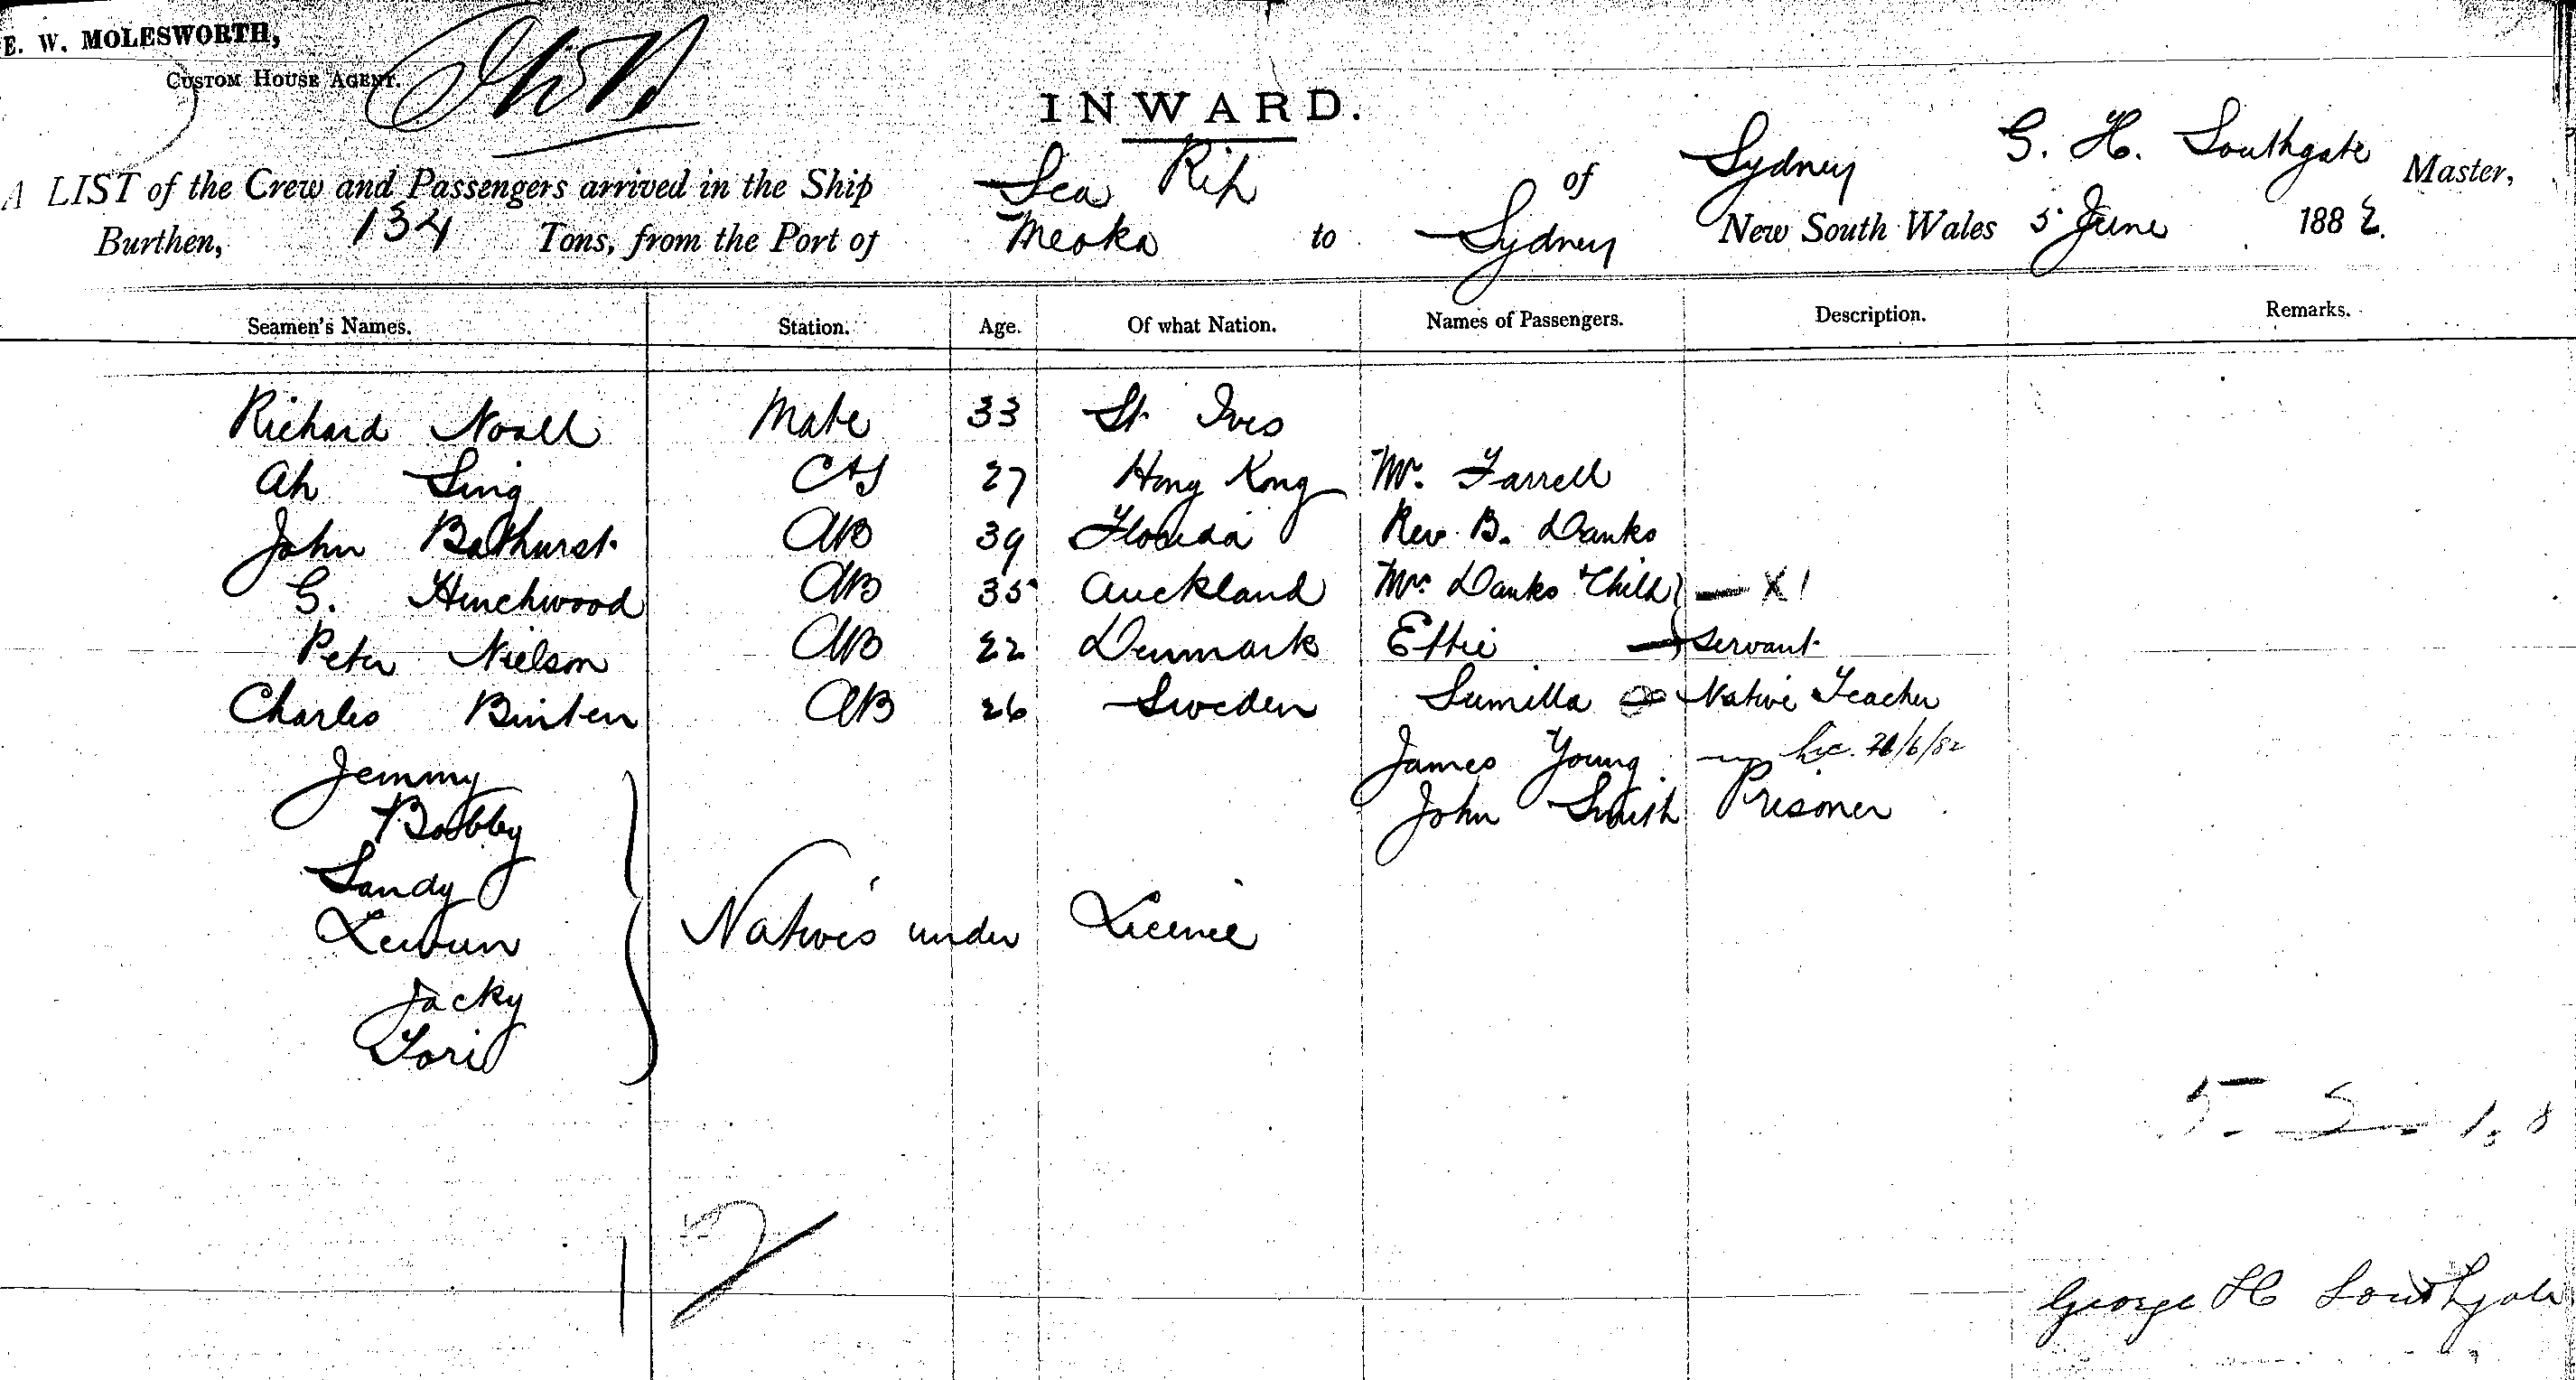 E. W. MOLESWORTH,
CUSTOM HOUSE AGENT.
INWARD.
A LIST of the Crew and Passengers arrived in the Ship Sea Rip of Sydney G. H. Southgate Master,
Burthen, 134 Tons, from the Port of Meoka to Sydney New South Wales 5 June 1882.
Seamen's Names. Station. Age. Of what Nation. Names of Passengers. Description. Remarks.
Richard Noall Mate 33 St Ives
Ah Sing C&S 27 Hong Kong Mr. Farrell
John Bathurst AB 39 Florida Rev. B. Danks
G. Hinchwood AB 35 Auckland Mrs Danks & Child X 1
Peter Nielson AB 22 Denmark Effie Servant
Charles Binten AB 26 Sweden Sumilla Native Teacher
Jemmy James Young /6/82
Bobby John Smith Prisoner
Sandy
Natives under Licence
Jacky
Tori
George H Southgate